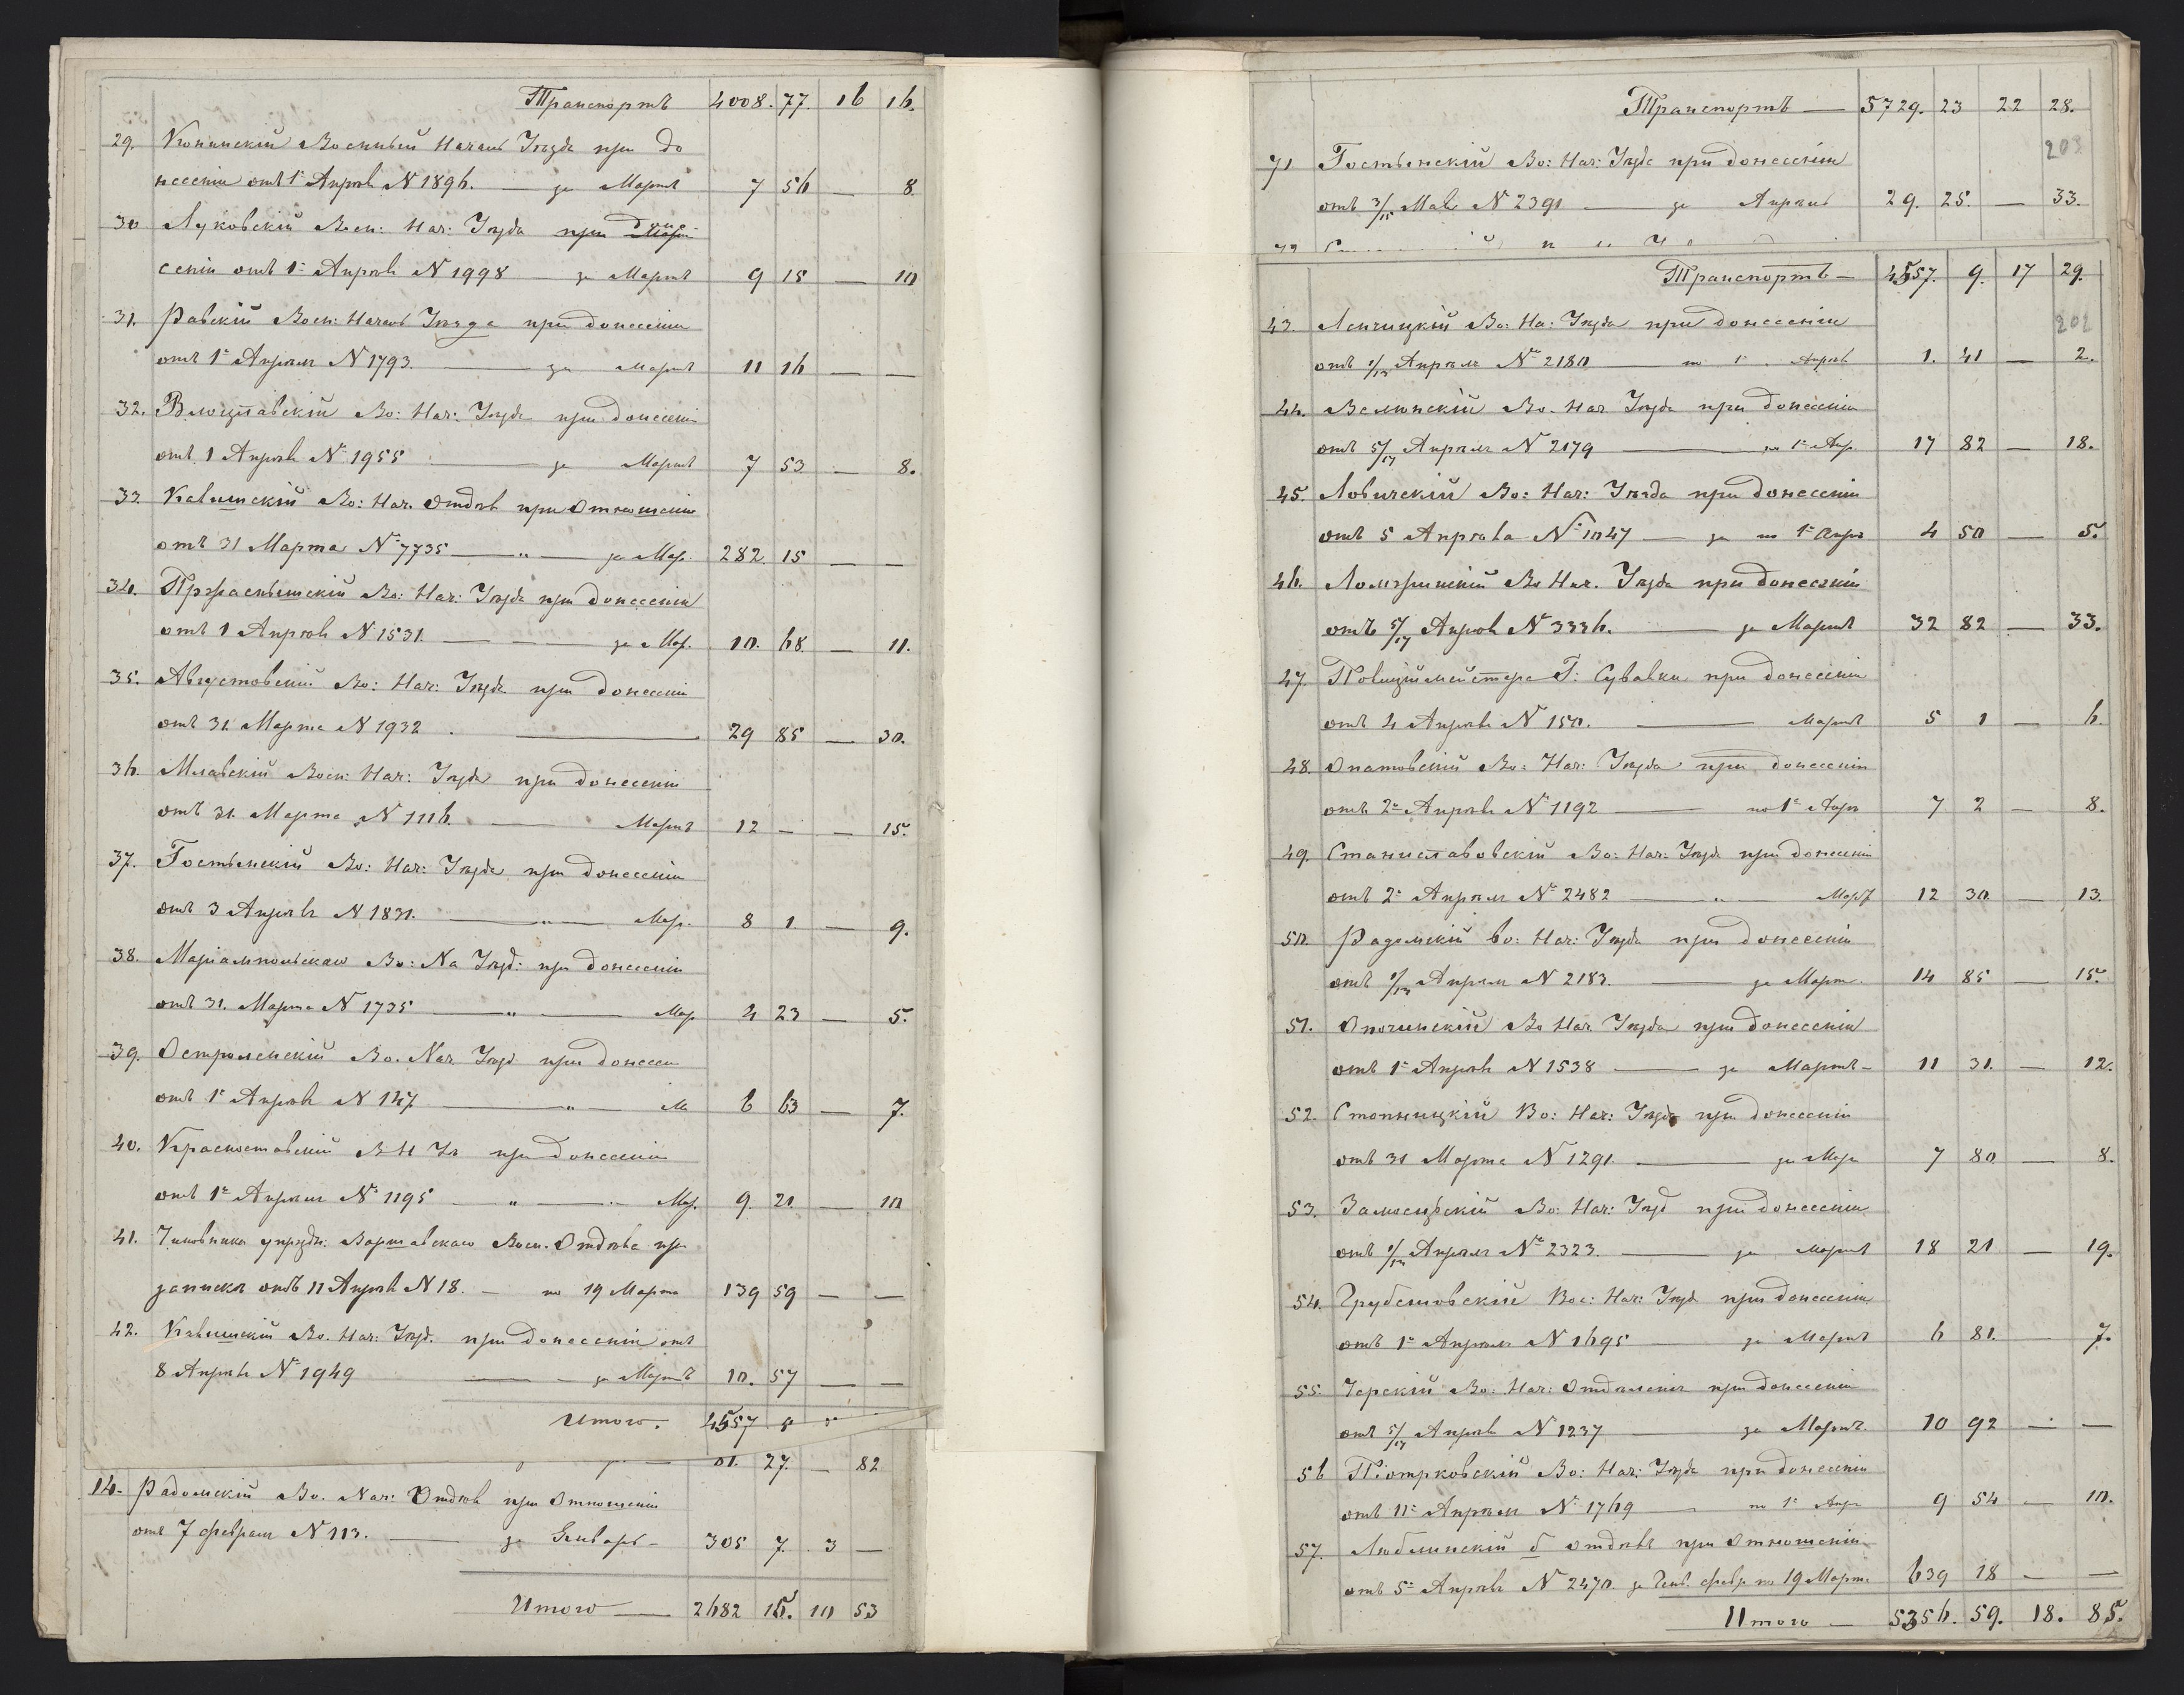 Транспортъ 4008. 77. 16 16.
29. Конинскій Военный Началь Уѣзда при до
несеніи отъ 1го Апрѣля N 1896. — за Мартъ 7 56 — 8.
30 Луковскій Воен: Нач: Уѣзда при доне-
сеніи отъ 1го Апрѣля N 1998 — за Мартъ 9 15 — 10
31. Равскій Воен: Началь Уѣзда при донесеніи
отъ 1го Апрѣля N 1793. — за Мартъ 11 16 — —
32. Влоцлавскій Во: Нач: Уѣзда при донесеніи
отъ 1 Апрѣля N 1955 — за Мартъ 7 53 — 8.
33. Калишскій Во: Нач. Отдѣл при Отношеніи
отъ 31 Марта N 7735 — " — за Мар. 282. 15 — —
34. Пржаснышскій Во: Нач: Уѣзда при донесеніи
отъ 1 Апрѣля N 1531. — за Мар. 10. 68. — 11.
35. Августовскій Во: Нач: Уѣзда при донесеніи
отъ 31 Марта N 1932 . — 29 85 — 30.
36. Млавскій Воен: Нач: Уѣзда при донесеніи
отъ 31. Марта N 1116. — Мартъ 12 — — 15.
37. Гостынскій Во: Нач: Уѣзда при донесеніи
отъ 3 Апрѣля N 1831. — " — Мар. 8 1. — 9.
38. Маріампольскаго Во: На Уѣзд: при донесеніи
отъ 31. Марта N 1735 — " — Мар 4 23 — 5.
39. Остроленскій Во. Нач. Уѣзд. при донесен
отъ 1го Апрѣля N 147. — " — Ма 6 63 — 7.
40. Красноставскій В Н Уѣ при донесеніи
отъ 1го Апрѣля N 1195 — " — Мар. 9. 21 — 10
41. Чиновника упразд: Варшавскаго Воен. Отдѣла при
запискѣ отъ 11 Апрѣля N 18. — по 19 Марта 139 59 — —
42. Калишскій Во. Нач: Уѣзд. при донесеніи отъ
8 Апрѣля N 1949 — за Мартъ 10. 57 — —
Итого. 4557
27. — 82
14. Радомскій Во. Нач: Отдѣл при Отношеніи
отъ 7 февраля N 113. — за Январь — 305 7. 3 —
Итого — 2682 15. 10 53
Транспортъ — 5729. 23 22 28.
203
71 Гостынскій Во: Нач: Уѣзда при донесеніи
отъ 3/15 Мая N 2391 — за Апрѣль 29. 25. — 33.
Транспортъ — 4557. 9. 17 29.
202
43. Ленчицкій Во: На: Уѣзда при донесеніи
отъ 1/13 Апрѣля N 2180 — по 1е Апрѣля 1. 41 — 2.
44. Велюнскій Во. Нач Уѣзда при донесеніи
отъ 5/17 Апрѣля N 2179 — по 1е Апр. 17 82 — 18.
45. Ловичскій Во: Нач: Уѣзда при донесеніи
отъ 5 Апрѣля N 1047 — за по 1е Апрѣ 4 50 — 5.
46. Ломжинскій Во Нач. Уѣзда при донесеніи
отъ 5/17 Апрѣля N 3336. — за Мартъ 32 82 — 33.
47. Полиціймейстера Г: Сувалки при донесеніи
отъ 4 Апрѣля N 150. — Мартъ 5 1 — 6.
48. Опатовскій Во: Нач: Уѣзда при донесеніи
отъ 2го Апрѣля N 1192 — по 1е Апрѣ 7 2 — 8.
49. Станиславовскій Во: Нач: Уѣзда при донесеніи
отъ 2го Апрѣля N 2482 — " — Март 12 30 — 13.
50. Радомскій Во: Нач: Уѣзда при донесеніи
отъ 1/13 Апрѣля N 2183. — за Март. 14 85 — 15.
51. Опочинскій Во Нач. Уѣзда при донесеніи
отъ 1го Апрѣля N 1538 — за Мартъ — 11 31. — 12.
52. Стопницкій Во: Нач: Уѣзда при донесеніи
отъ 31 Марта N 1291. — за Мар 7 80 — 8.
53. Замосцьскій Во: Нач: Уѣзд при донесеніи
отъ 1/13 Апрѣля N 2323. — за Мартъ 18 21 — 19.
54. Грубешовскій Вое: Нач: Уѣзд при донесеніи
отъ 1го Апрѣля N 1695 — за Мартъ 6 81. — 7.
55. Черскій Во: Нач: Отдѣленія при донесеніи
отъ 5/17 Апрѣля N 1237 — за Мартъ. 10 92 — —
56 Піотрковскій Во: Нач: Уѣзда при донесеніи
отъ 11го Апрѣля N 17619 — по 1е Апр 9 54 — 10.
57. Люблинскій Отдѣлъ при Отношеніи
отъ 5го Апрѣля N 2470. за Генв. февр по 19 Март. 639 18 — —
Итого — 5356. 59. 18. 85.